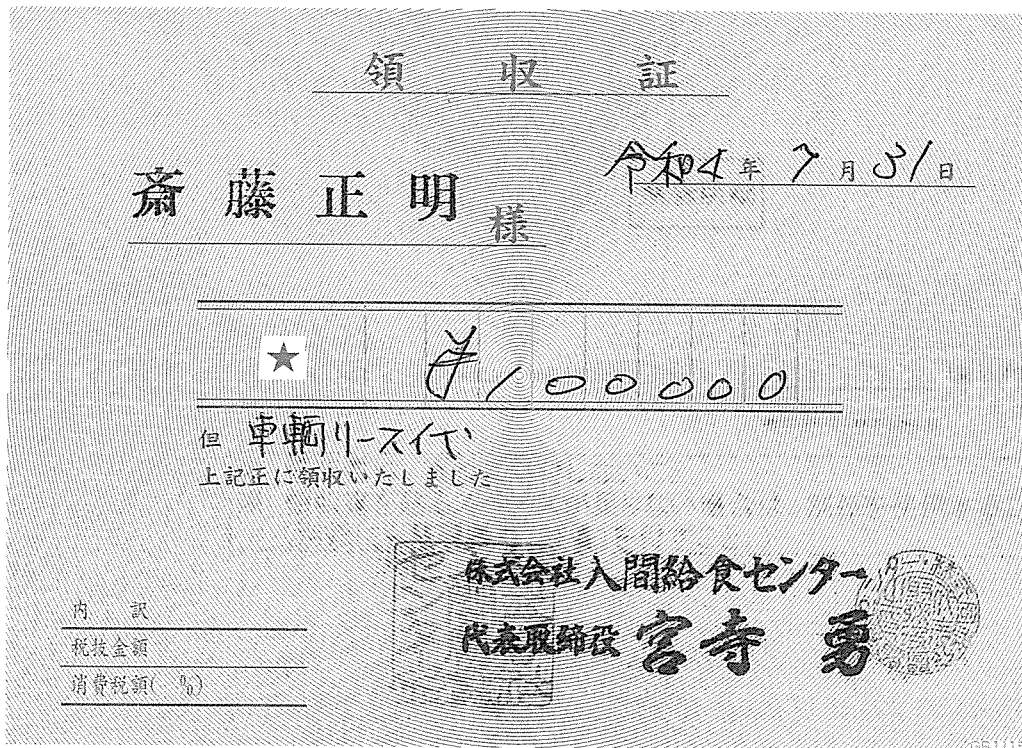 領収証
令和4年7月31日
斎藤正明様
★ ¥100000
但 車輌リース代
上記正に領収いたしました
株式会社入間給食センター
代表取締役 宮寺 勇
内訳
税抜金額
消費税額( %)